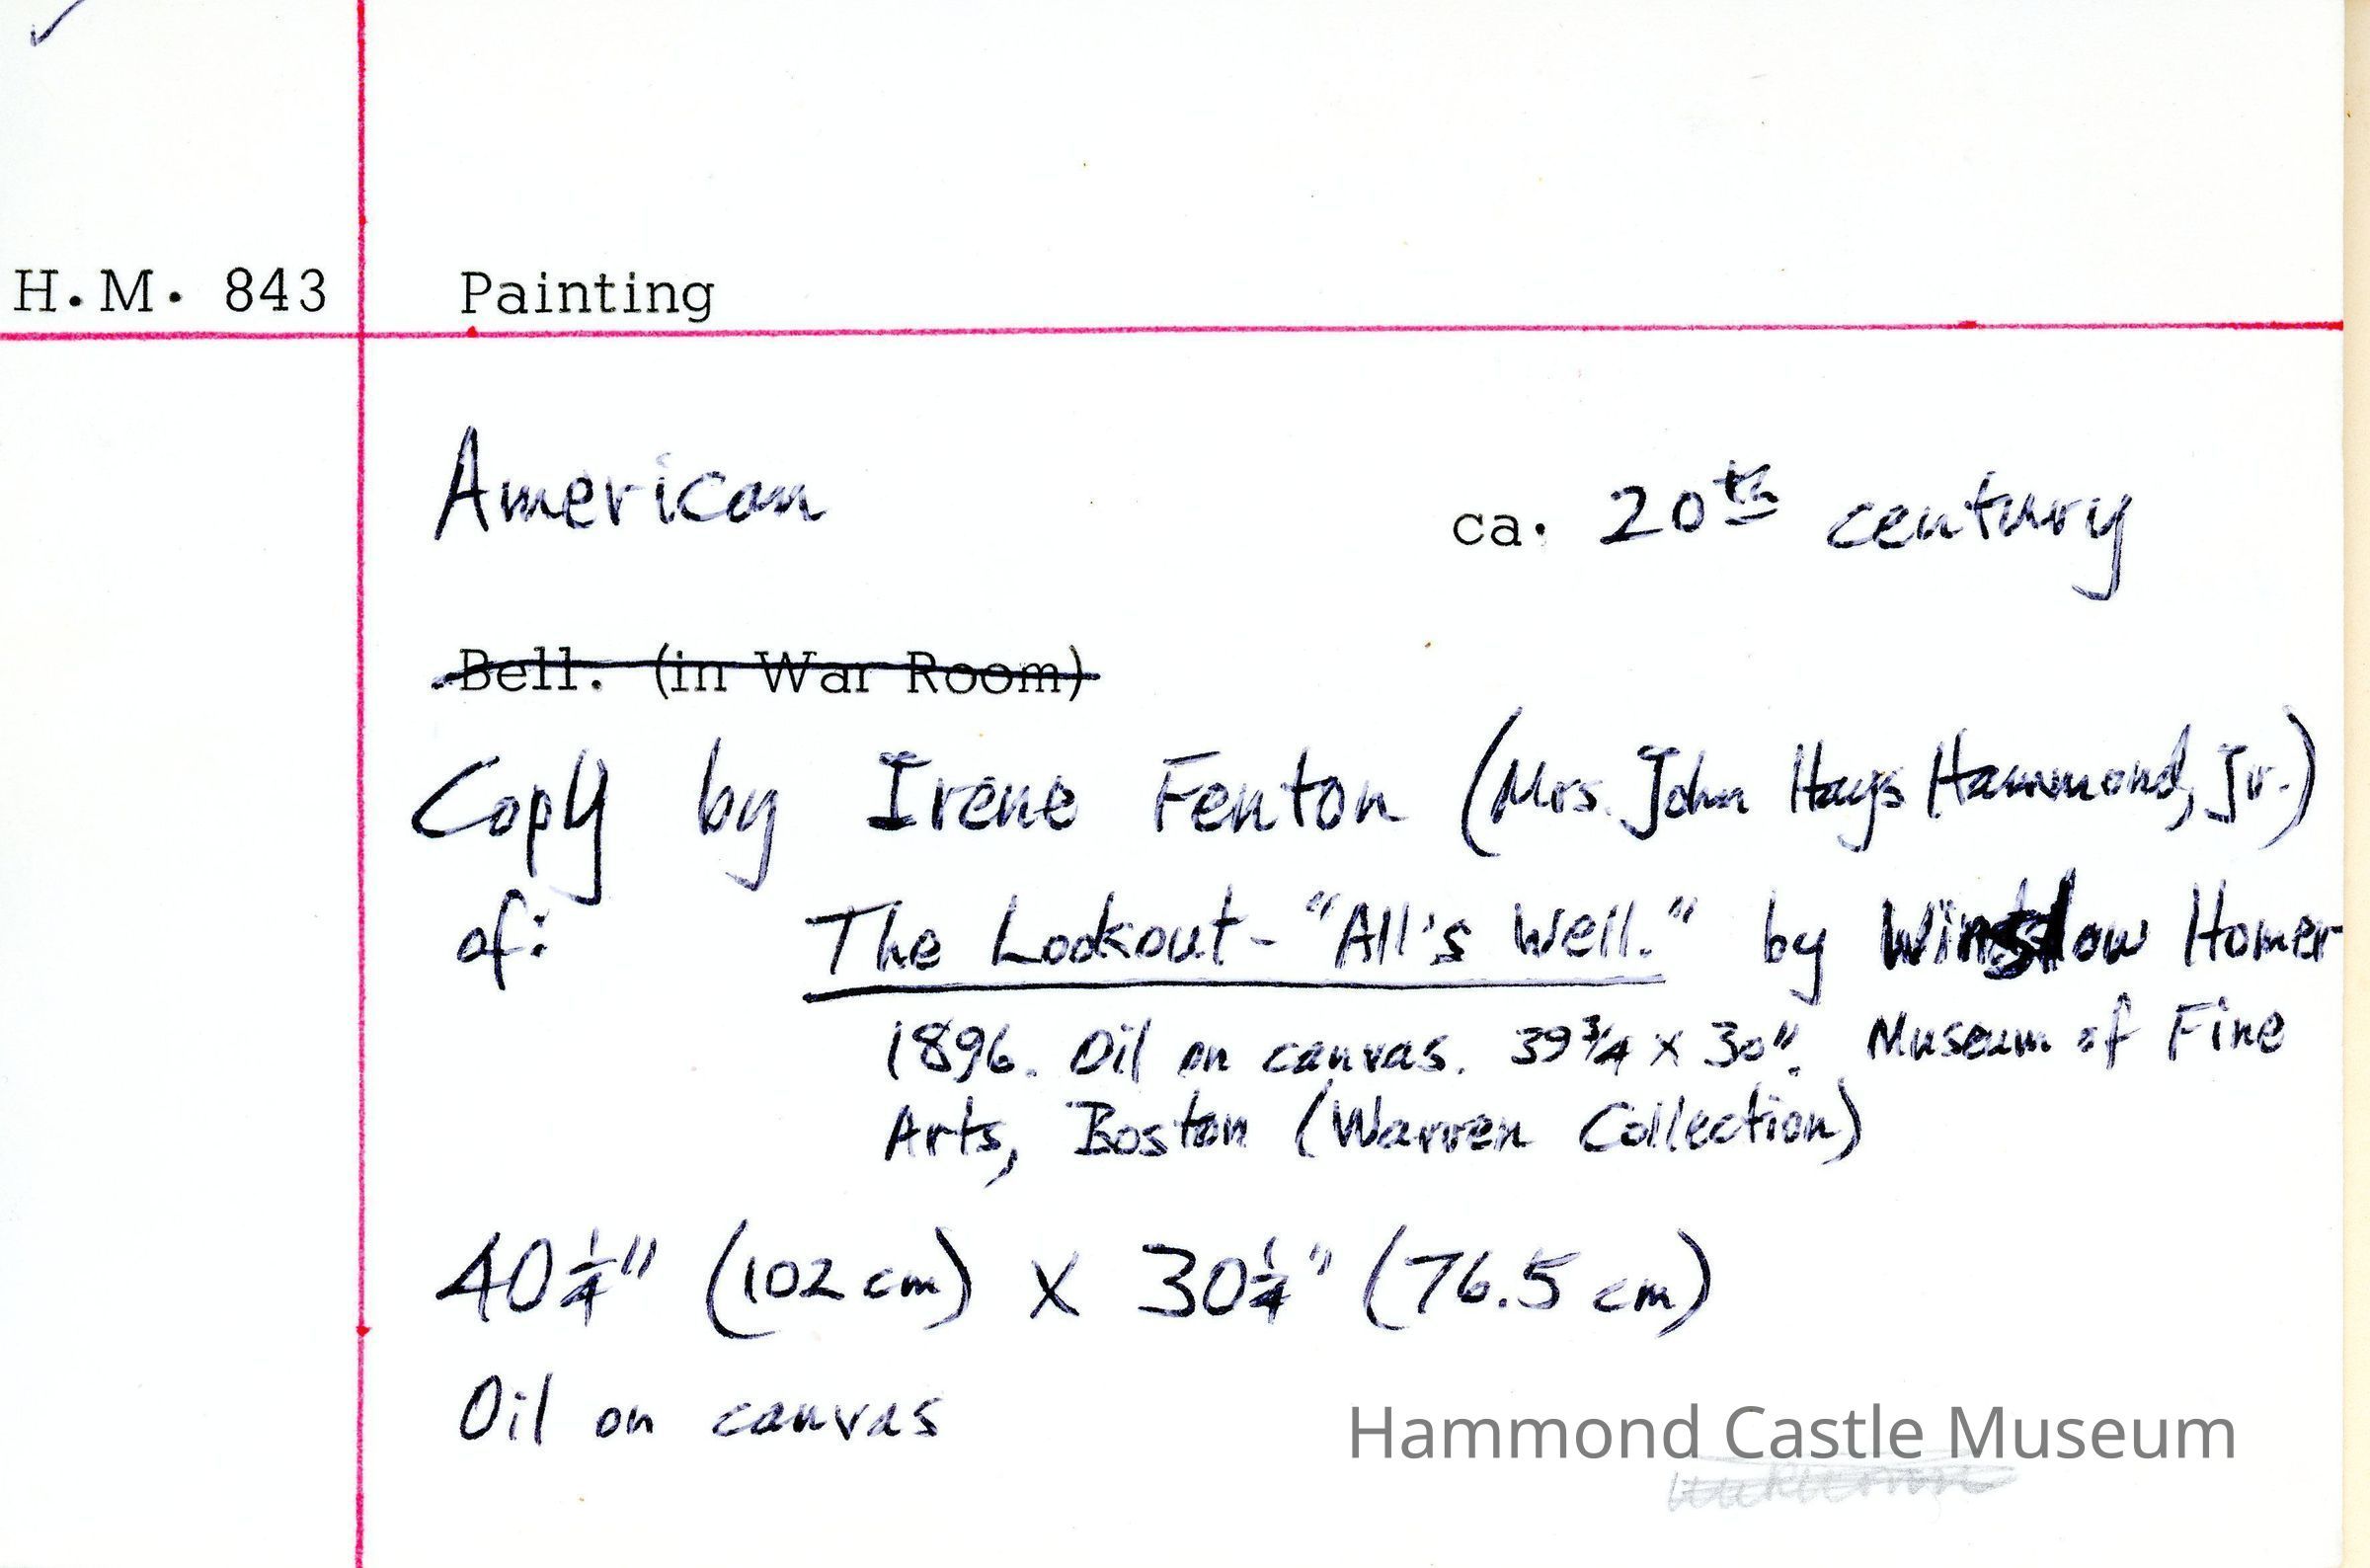 H.M. 843 Painting
American ca. 20th century
Bell. (in War Room)
Copy by Irene Fenton (Mrs. John Hays Hammond, Jr.)
of: The Lookout - "All's Well." by Winslow Homer
1896. Oil on canvas. 39 3/4 x 30". Museum of Fine
Arts, Boston (Warren Collection)
40 1/4" (102 cm) X 30 1/4" (76.5 cm)
Oil on canvas
Hammond Castle Museum